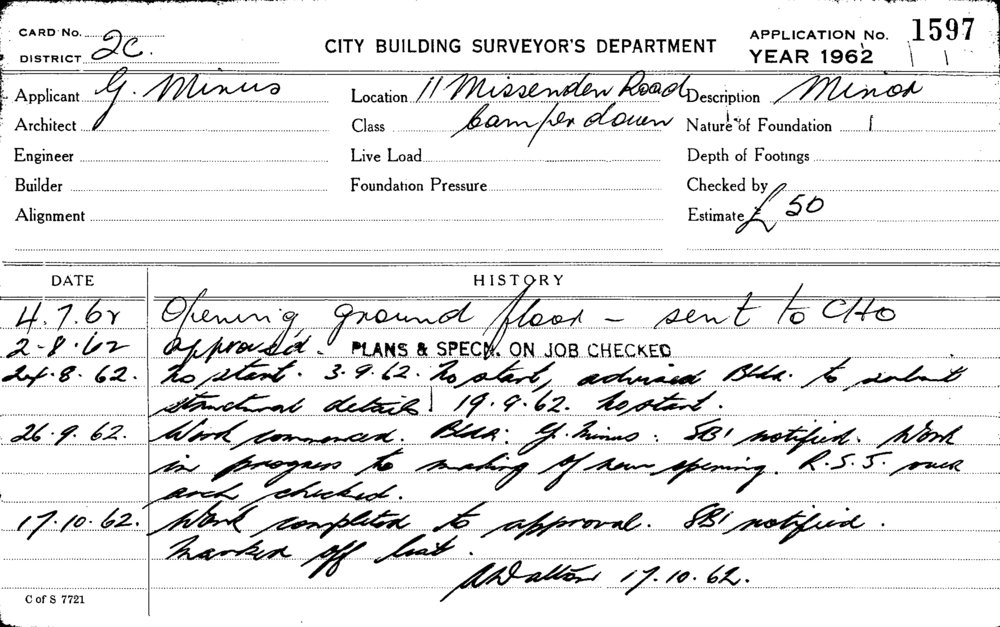 CARD No.
DISTRICT 2C.
CITY BUILDING SURVEYOR'S DEPARTMENT
APPLICATION No. 1597
YEAR 1962
Applicant G. Minus Location 11 Missenden Road Description Minor
Architect Class Camperdown Nature of Foundation
Engineer Live Load Depth of Footings
Builder Foundation Pressure Checked by
Alignment Estimate £ 50
DATE HISTORY
4.7.62 Opening ground floor - sent to CHO
2-8.62 approved. PLANS & SPECN. ON JOB CHECKED
24.8.62. No start. 3.9.62. No start, advised Bldr. to submit
structural details 19.9.62. No start.
26.9.62. Work commenced. Bldr: G. Minus. SBI notified. Work
in progress to making of new opening. R.S.J. over
arch checked.
17.10.62. Work completed to approval. SBI notified.
Marked off list.
ADalton 17.10.62.
C of S 7721